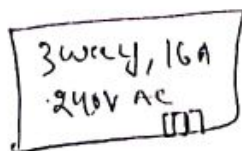 3 way, 16A
240V AC